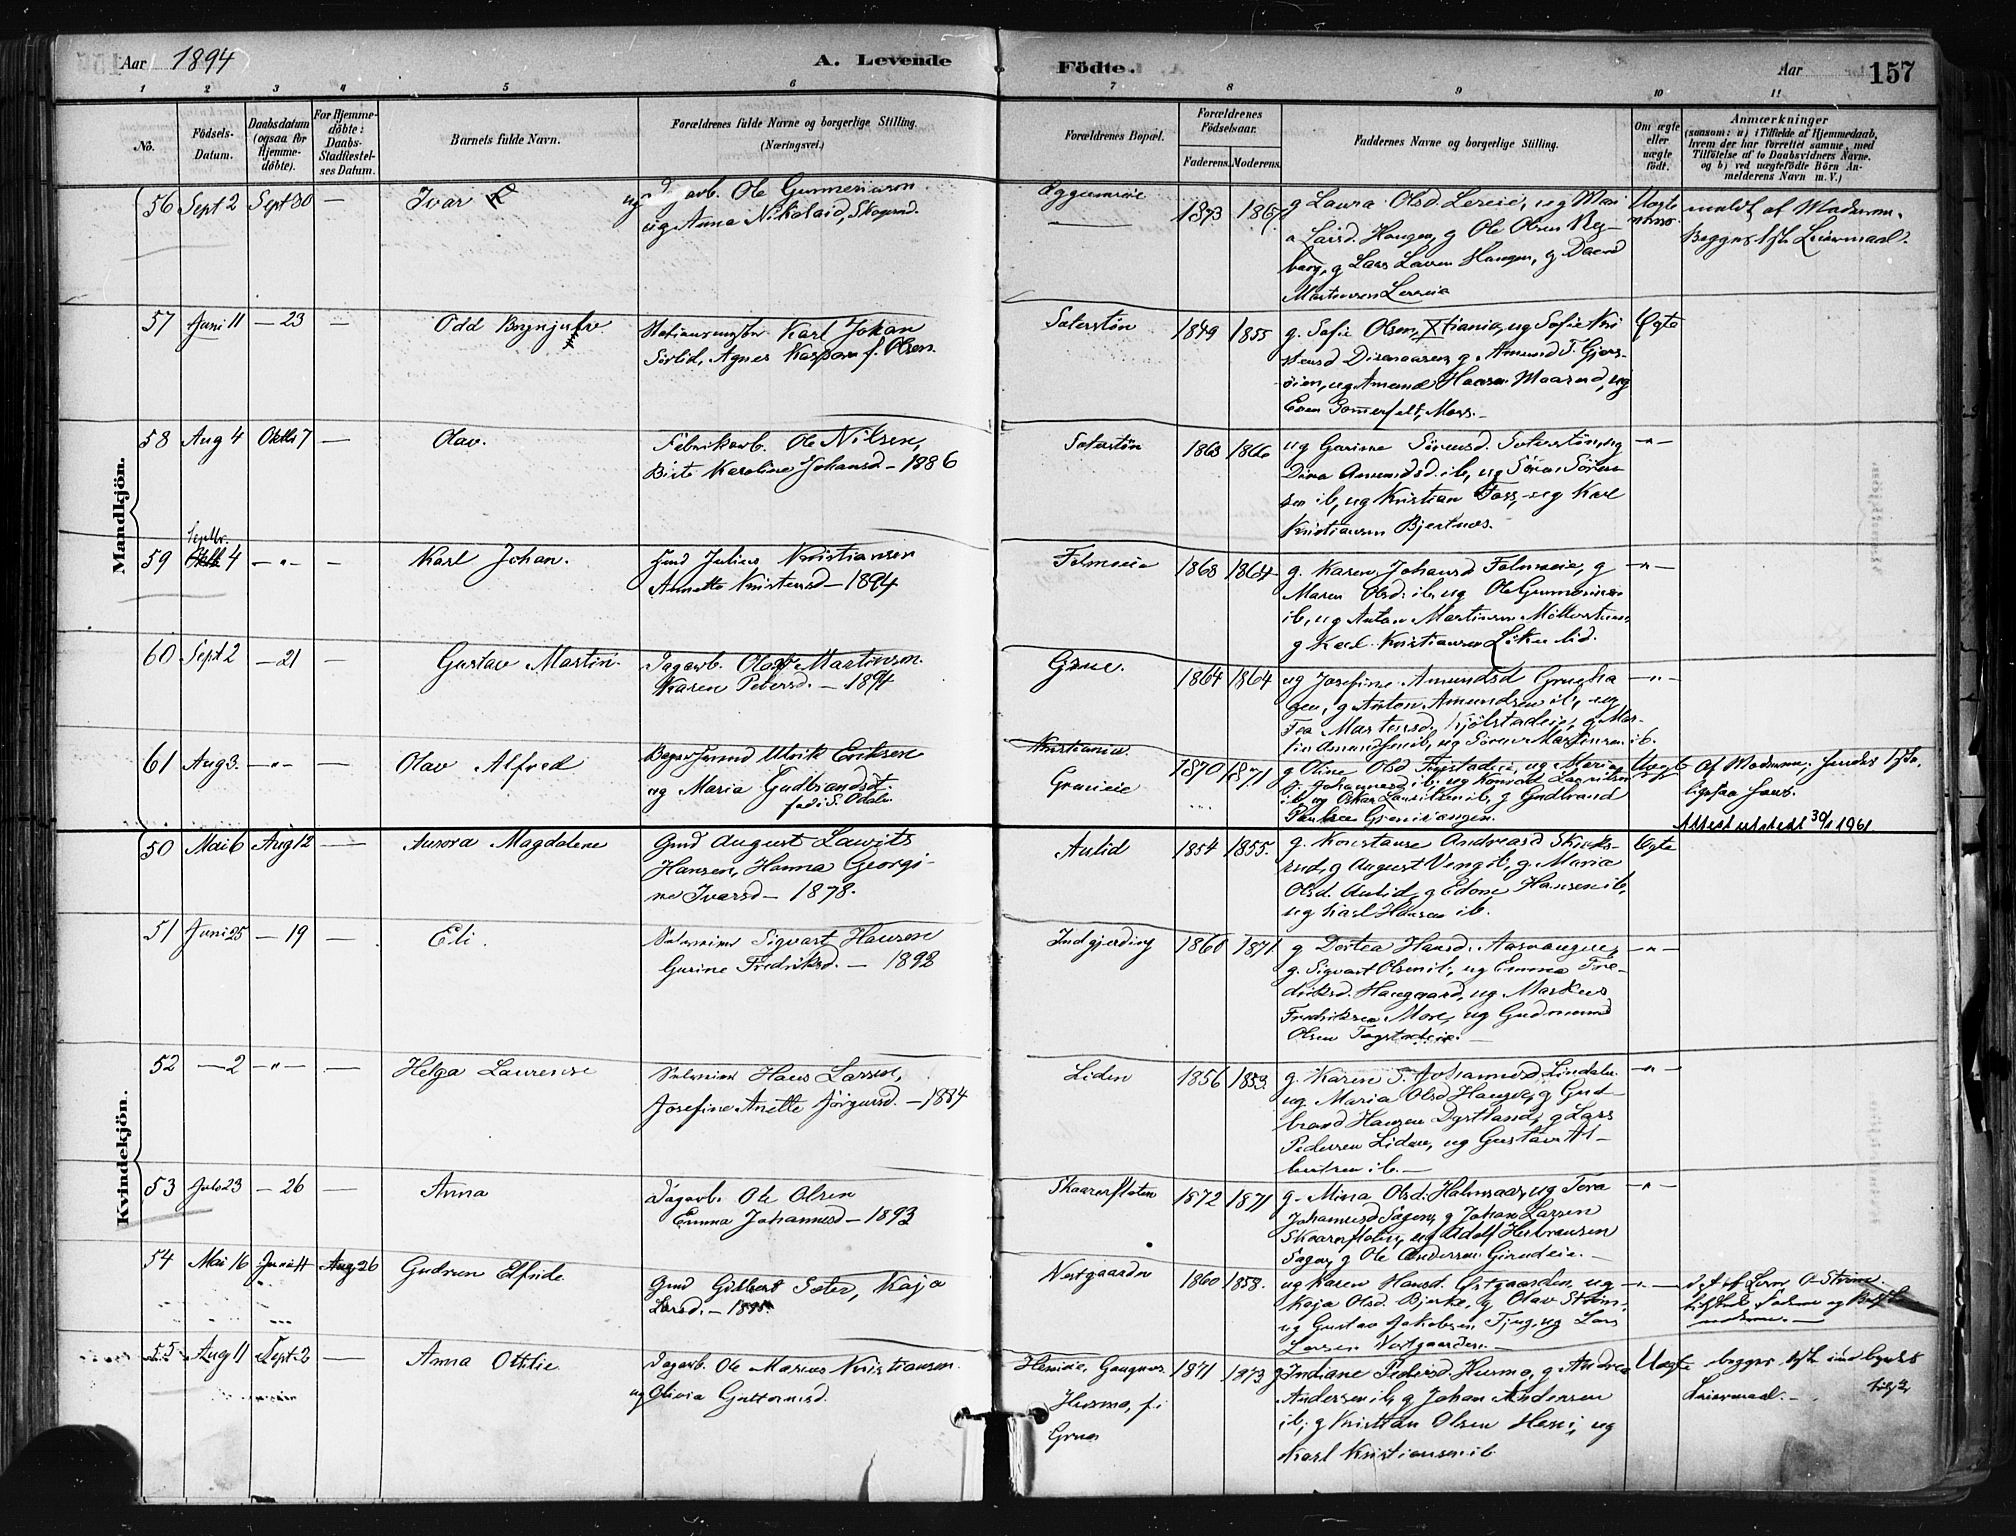 Aar 1894 A. Levende Födte. Aar 157
1 2 3 4 5 6 7 8 9 10 11
No. Födsels-Datum. Daabsdatum (ogsaa for Hjemme-döbte). For Hjemme-döbte: Daabs-Stadfæstel-ses Datum. Barnets fulde Navn. Forældrenes fulde Navne og borgerlige Stilling. (Næringsvei.) Forældrenes Bopæl. Forældrenes Födselsaar. Faderens. Moderens. Faddernes Navne og borgerlige Stilling. Om ægte eller uægte födt. Anmærkninger (saasom: a) i Tilfælde af Hjemmedaab, hvem der har forrettet samme, med Tilföielse af to Daabsvidners Navne. og b) ved uægtefödte Börn An-melderens Navn m. V.)
Mandkjön.
56 Sept 2 Sept 30 — Ivar
ug arb. Ole Gunneriusen
ug Anna Nikolaisd, Skogrud
1873 1867
g Laura Olsd Lereie, ug Mari
a Larsd. Haugen, g Ole Olsen Reg-
berg, g Lars Larsen Haugen, g Daniel
Martinsen Lereie
Uægte
meldt af Moderen.
Begges 1ste Leiermaal.
57 Juni 11 — 23 — Odd Brynjulf
Karl Johan
Sørlid, Agnes Kaspara f. Olsen.
Saterstøn 1849 1855
g. Sofie Olsen, Xtiania, ug Sofie Kri
stensd g. Amund T. Gjers-
øien, ug Amund Hansen Maarud, ug
Even Sommerfelt, Moss.
Ægte
58 Aug 4 Oktb 7 — Olav.
Fabrikarb. Ole Nilsen,
Birte Karoline Johansd — 1886
Saterstøn 1863 1866
ug Gurine Sørensd. Saterstøn, ug
Dina Amundsd. ib, ug Søren Søren
sen ib, ug Kristian Foss, ug Karl
Kristiansen Bjertnæs.
— " —
59 Septbr. 4 — " — — Karl Johan.
Gmd Julius Kristiansen
Annette Kristensd — 1894
Folmoeie 1868 1864
g. Karen Johansd Folmoeie, g
Maren Olsd. ib, ug Ole Gunneriusen
ib, ug Anton Martinsen Møllerstuen,
g Karl Kristiansen Likulid.
— " —
60 Sept 2 — 21 — Gustav Martin.
Dagarb. Olaf Martinsen.
Karen Petersd. — 1894
Grue. 1864 1864
ug Josefine Amundsd Grueha
gen, g Anton Amundsen ib, ug
Tea Martinsd. Kjølstadeie, g Mar-
tin Amundsen ib, ug Søren Martinsen ib.
— " —
61 Aug 3. — " — — Olav Alfred
Bagersvend Ulrik Eriksen
ug Maria Gudbrandsd.
fød i S. Odalen.
Kristiania
Grueeie 1870 1871
g Oline Olsd Fugstadeie, ug Marie
G. Johannesd ib, ug Konrad Lauritsen
ib, ug Oskar Lauritsen ib, g Gudbrand
Uægte
Af Moderen; hendes 1ste,
ligesaa hans.
Attest utstedt 30/1 1961
Kvindekjön.
50 Mai 6 Aug 12 — Aurora Magdalene
Gmd August Laurits
Hansen, Hanna Georgi-
ne Ivarsd — 1878.
Aulid 1854 1855.
g. Konstanse Andreasd Skinks-
rud, g August Venger, g. Maria
Olsd. Aulid, g Edone Hansen ib,
ug Karl Hansen ib.
Ægte
51 Juni 25 — 19 — Eli.
Selveier Sigvart Hansen
Gurine Fredriksd. — 1892
Indgjerding 1860 1871
g Dortea Hansd. Aasvangen,
g. Sigvart Olsen ib, ug Emma Fre-
driksd. Haugaard, ug Markus
Fredriksen More, ug Gudmund
Olsen Fugstadeie.
— " —
52 — 2 — " — — Helga Laurense
Selveier Hans Larsen,
Josefine Anette Jörgensd. — 1884
Liden 1856 1853.
g. Karen S. Johannesd Lindalen
ug Maria Olsd Haugen, g Gud-
brand Hansen Dystland, g Lars
Pedersen Liden, ug Gustav Al-
bertsen ib. —
— " —
53 Juli 23 — 26 — Anna
Dagarb. Ole Olsen
Emma Johannesd — 1893
Skaarerfloten 1872 1871
g. Mina Olsd. Holmsaas, ug Tora
Johannesd Sagen, g Johan Larsen
Skaarerfloten, ug Adolf Herbransen
Sagen, g Ole Andersen Girudeie. —
— " —
54 Mai 16 Juni 11 Aug 26 Gudrun Elfride
Gmd Gilbert Sæter, Kaja
Larsd. —
Vestgaarden 1860 1858.
ug Karen Hansd. Østgaarden, ug
Kaja Olsd. Bjerke, g Olav Strøm,
ug Gustav Jakobsen Tjuge, ug Lars
Larsen Vestgaarden. —
— " —
d. A. af O. Strøm.
tilstede Faderen og
moderen. —
55 Aug 11 Sept 2 Anna Ottilie
Dagarb. Ole Marius Kristiansen
ug Olivia Guttormsd.
Gaugnæs
Husmo, f. i
Grue
1871 1873
g Indiane Pedersd Husmo, g Andrea
Andersen ib, g Johan Andersen
ib, g Kristian Olsen Heni, ug
Karl Kristiansen ib
Uægte
begges 1ste
Leiermaal. —